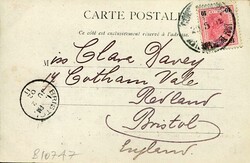 CARTE POSTALE
Ce côté est exclusivement réservé à l'adresse.
Miss Clara Davey
17 Cotham Vale
Redland
Bristol
England
E10747